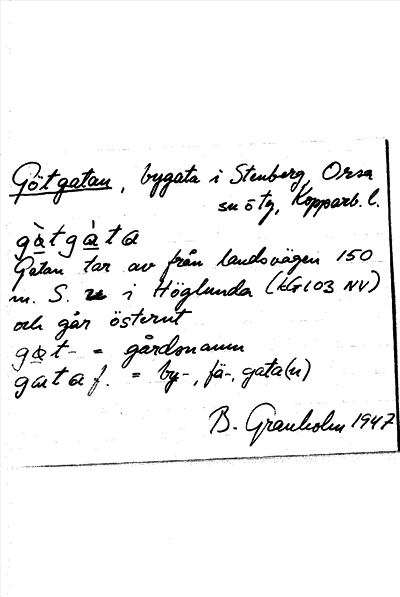 Götgatan, bygata i Stenberg, Orsa
sn ö tg, Kopparb. l.
gàtgàta
Gatan tar av från landsvägen 150
m. S. i Höglunda (kG103 NV)
och går österut
gat- = gårdsnamn
gata f. = by-, fä-, gata(n)
B. Granholm 1947